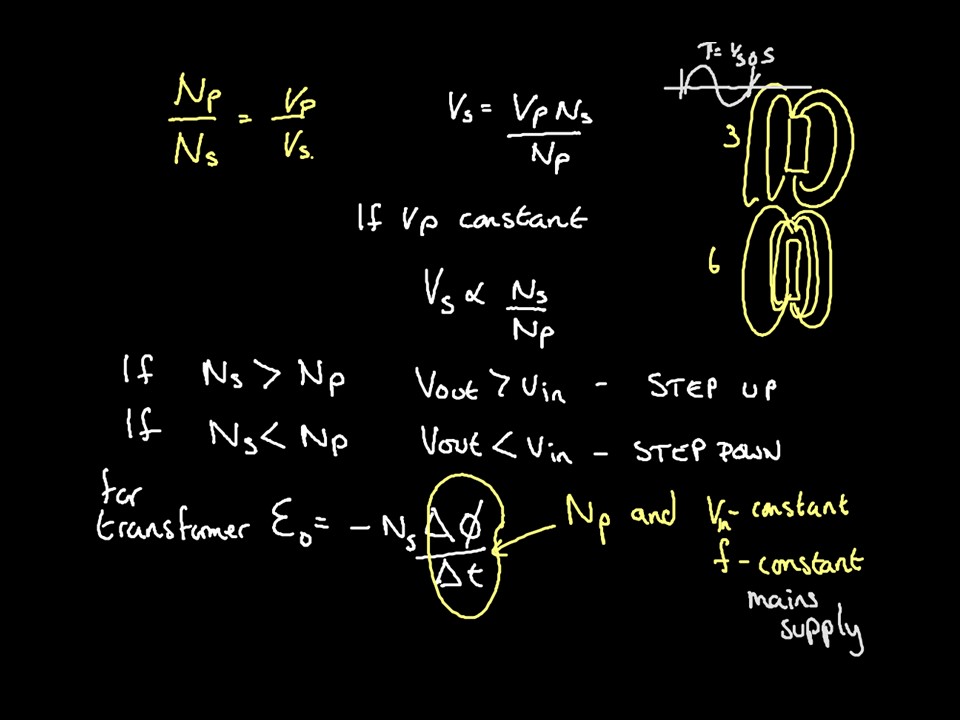 Np/Ns = Vp/Vs.
Vs = Vp Ns/Np
T = 1/50 s
3
If Vp constant
6
Vs ∝ Ns/Np
If Ns > Np Vout > Vin - STEP UP
If Ns < Np Vout < Vin - STEP DOWN
for transformer Ɛo = - Ns Δϕ/Δt
Np and Vin - constant
f - constant
mains
supply